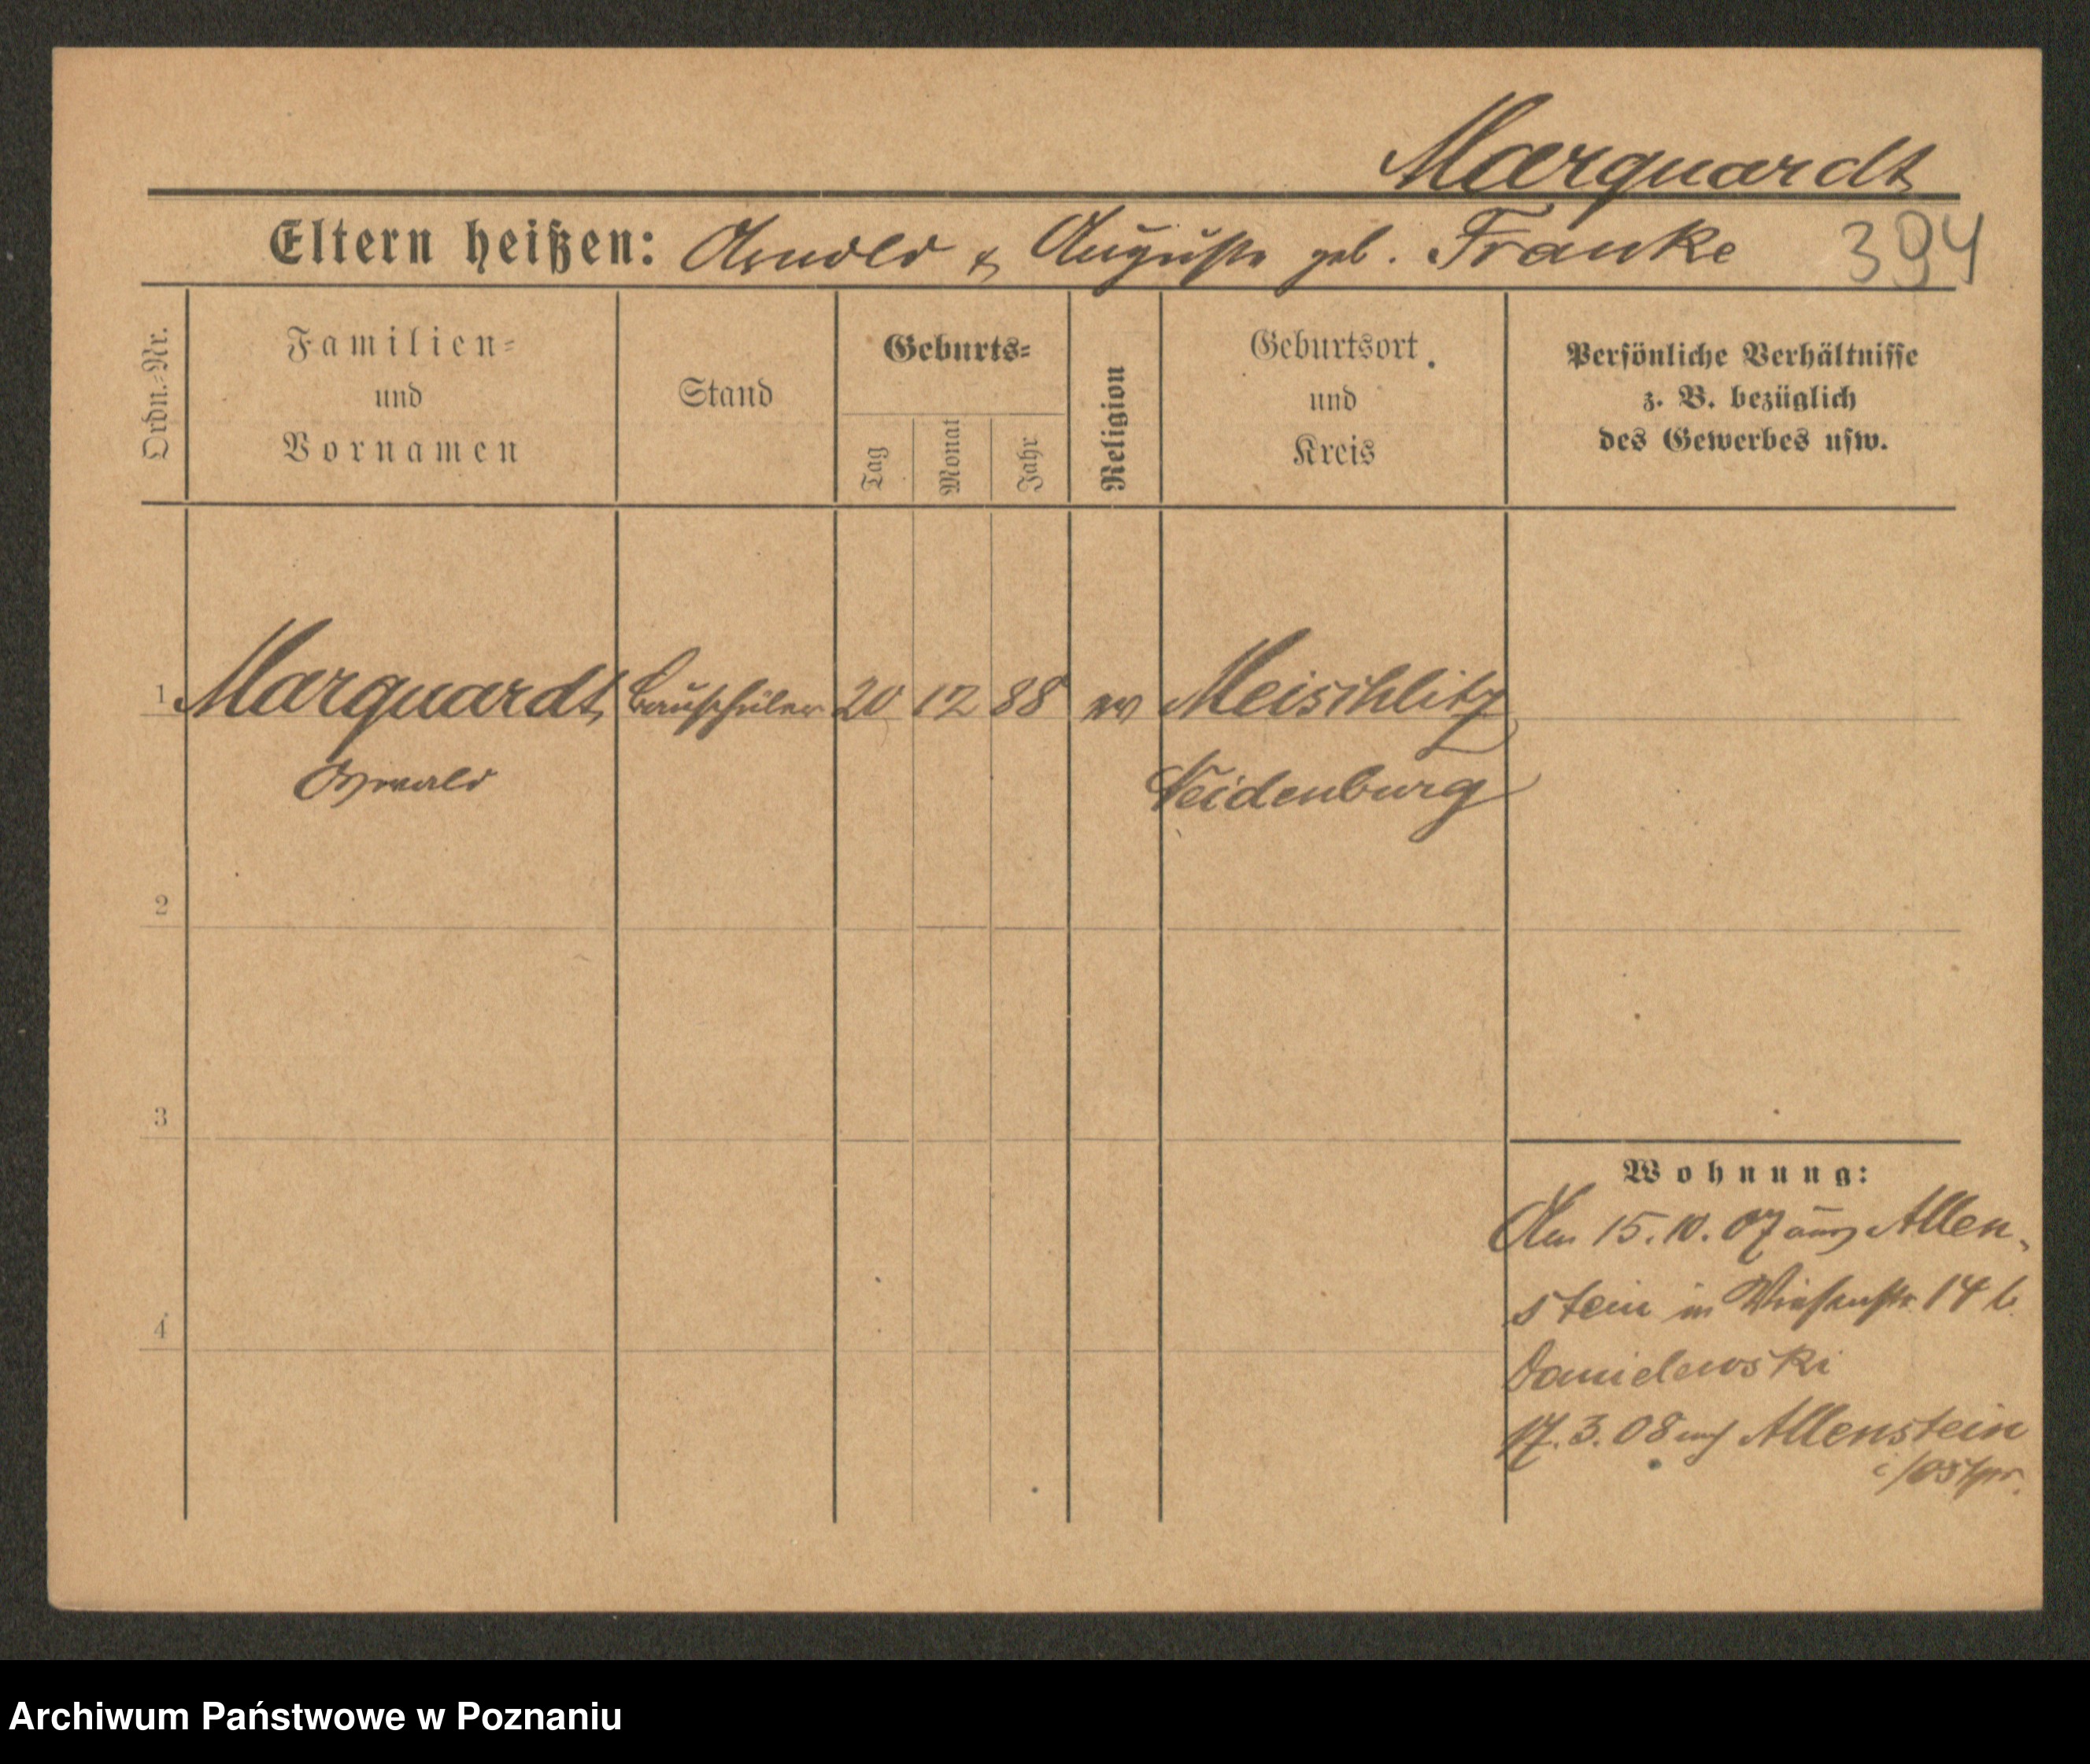 Marquardt
Eltern heißen: Arnold & Auguste geb. Franke 394
Ordn.-Nr.
Familien-
und
Vornamen
Stand
Geburts-
Tag
Monat
Jahr
Religion
Geburtsort
und
Kreis
Persönliche Verhältnisse
z. B. bezüglich
des Gewerbes usw.
1 Marquardt, Bauschüler 20 12 88 ev Meischlitz
Oswald Neidenburg
2
3
4
Wohnung:
Am 15.10.07 aus Allen-
stein in Wiesenstr. 14 b.
Danielewski
17.3.08 nach Allenstein
i/Ostpr.
Archiwum Państwowe w Poznaniu